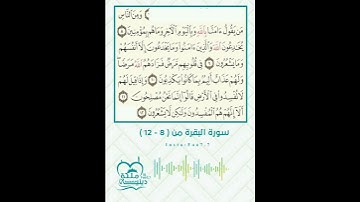 وَمِنَ النَّاسِ
مَن يَقُولُ ءَامَنَّا بِاللَّهِ وَبِالْيَوْمِ الْآخِرِ وَمَا هُم بِمُؤْمِنِينَ ٨
يُخَادِعُونَ اللَّهَ وَالَّذِينَ ءَامَنُوا وَمَا يَخْدَعُونَ إِلَّا أَنفُسَهُمْ
وَمَا يَشْعُرُونَ ٩ فِي قُلُوبِهِم مَّرَضٌ فَزَادَهُمُ اللَّهُ مَرَضًا
وَلَهُمْ عَذَابٌ أَلِيمٌ بِمَا كَانُوا يَكْذِبُونَ ١٠ وَإِذَا قِيلَ لَهُمْ
لَا تُفْسِدُوا فِي الْأَرْضِ قَالُوا إِنَّمَا نَحْنُ مُصْلِحُونَ
١١ أَلَا إِنَّهُمْ هُمُ الْمُفْسِدُونَ وَلَٰكِن لَّا يَشْعُرُونَ ١٢
سورة البقرة من ( 8 - 12 )
ملكة
دينية